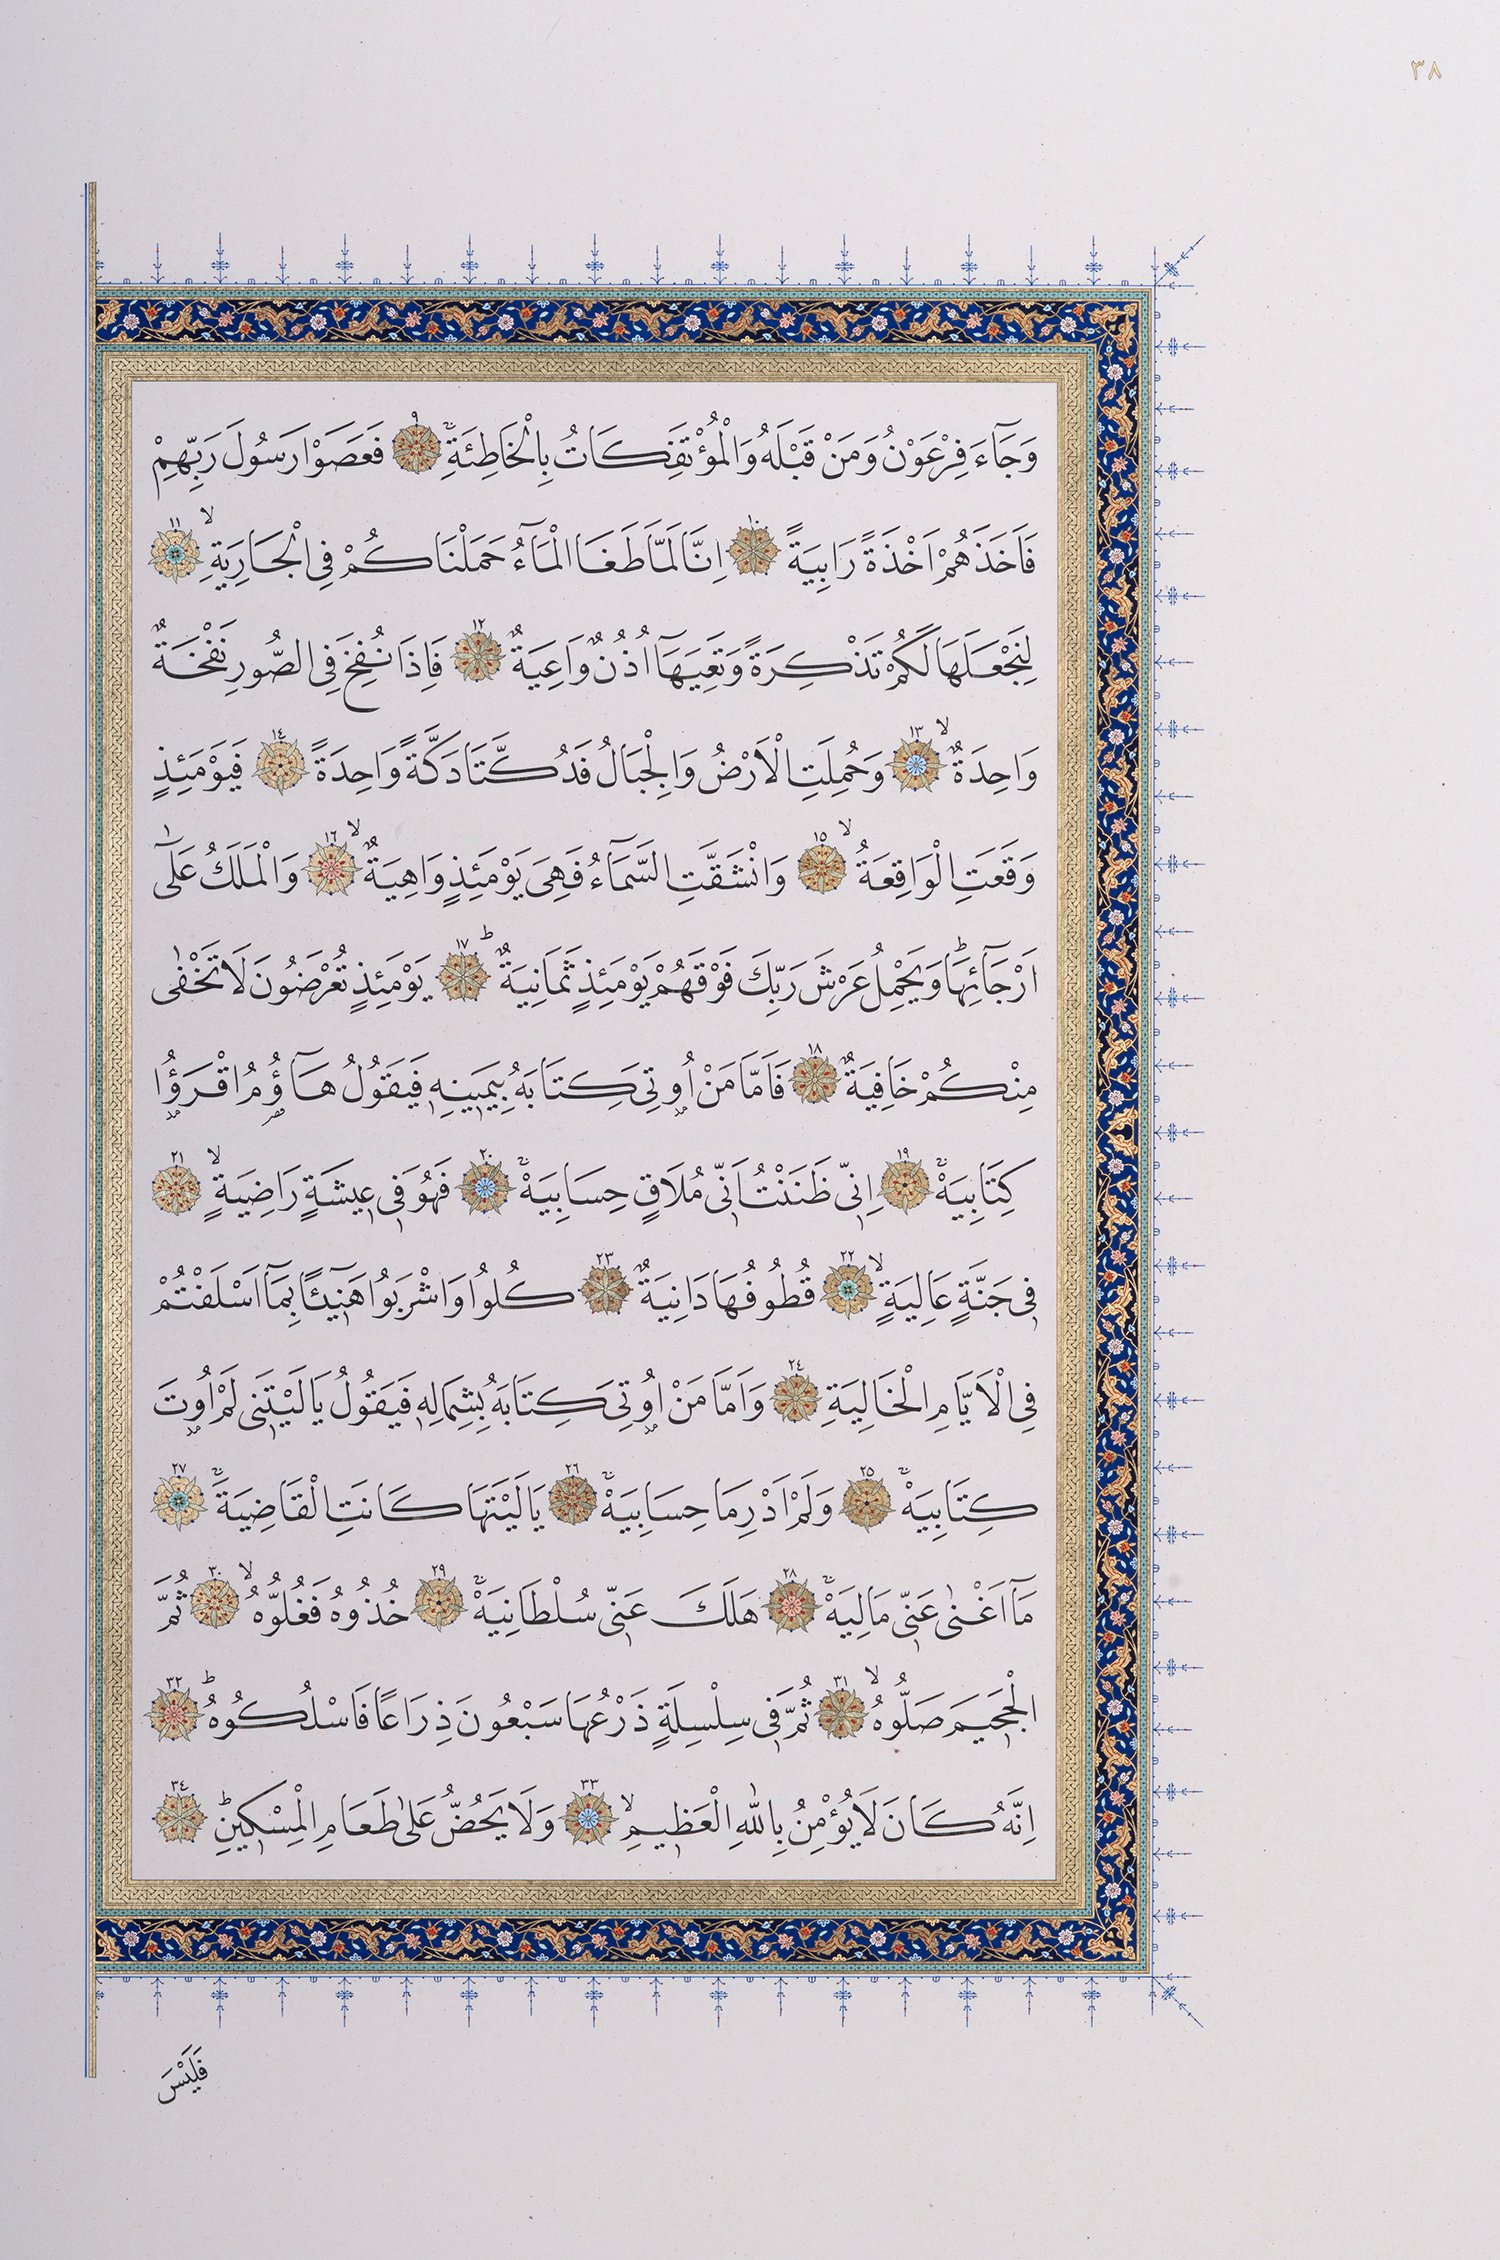 ٣٨
وَجَٓاءَ فِرْعَوْنُ وَمَنْ قَبْلَهُ وَالْمُؤْتَفِكَاتُ بِالْخَاطِئَةِۚ ٩ فَعَصَوْا رَسُولَ رَبِّهِمْ
فَاَخَذَهُمْ اَخْذَةً رَابِيَةً ١٠ اِنَّا لَمَّا طَغَا الْمَٓاءُ حَمَلْنَاكُمْ فِى الْجَارِيَةِۙ ١١
لِنَجْعَلَهَا لَكُمْ تَذْكِرَةً وَتَعِيَهَٓا اُذُنٌ وَاعِيَةٌ ١٢ فَاِذَا نُفِخَ فِى الصُّورِ نَفْخَةٌ
وَاحِدَةٌۙ ١٣ وَحُمِلَتِ الْاَرْضُ وَالْجِبَالُ فَدُكَّتَا دَكَّةً وَاحِدَةً ١٤ فَيَوْمَئِذٍ
وَقَعَتِ الْوَاقِعَةُۙ ١٥ وَانْشَقَّتِ السَّمَٓاءُ فَهِىَ يَوْمَئِذٍ وَاهِيَةٌۙ ١٦ وَالْمَلَكُ عَلٰٓى
اَرْجَٓائِهَاۜ وَيَحْمِلُ عَرْشَ رَبِّكَ فَوْقَهُمْ يَوْمَئِذٍ ثَمَانِيَةٌۜ ١٧ يَوْمَئِذٍ تُعْرَضُونَ لَا تَخْفٰى
مِنْكُمْ خَافِيَةٌ ١٨ فَاَمَّا مَنْ اُو۫تِىَ كِتَابَهُ بِيَمِينِهِ فَيَقُولُ هَٓاؤُ۬مُ اقْرَؤُ۫ا
كِتَابِيَهْۚ ١٩ اِنِّى ظَنَنْتُ اَنِّى مُلَاقٍ حِسَابِيَهْۚ ٢٠ فَهُوَ فِى عِيشَةٍ رَاضِيَةٍۙ ٢١
فِى جَنَّةٍ عَالِيَةٍۙ ٢٢ قُطُوفُهَا دَانِيَةٌ ٢٣ كُلُوا وَاشْرَبُوا هَنِٓيئًا بِمَٓا اَسْلَفْتُمْ
فِى الْاَيَّامِ الْخَالِيَةِ ٢٤ وَاَمَّا مَنْ اُو۫تِىَ كِتَابَهُ بِشِمَالِهِ فَيَقُولُ يَا لَيْتَنِى لَمْ اُو۫تَ
كِتَابِيَهْۚ ٢٥ وَلَمْ اَدْرِ مَا حِسَابِيَهْۚ ٢٦ يَا لَيْتَهَا كَانَتِ الْقَاضِيَةَۚ ٢٧
مَٓا اَغْنٰى عَنِّى مَالِيَهْۚ ٢٨ هَلَكَ عَنِّى سُلْطَانِيَهْۚ ٢٩ خُذُوهُ فَغُلُّوهُۙ ٣٠ ثُمَّ
الْجَحِيمَ صَلُّوهُۙ ٣١ ثُمَّ فِى سِلْسِلَةٍ ذَرْعُهَا سَبْعُونَ ذِرَاعًا فَاسْلُكُوهُۜ ٣٢
اِنَّهُ كَانَ لَا يُؤْمِنُ بِاللّٰهِ الْعَظِيمِۙ ٣٣ وَلَا يَحُضُّ عَلٰى طَعَامِ الْمِسْكِينِۜ ٣٤
فَلَيْسَ